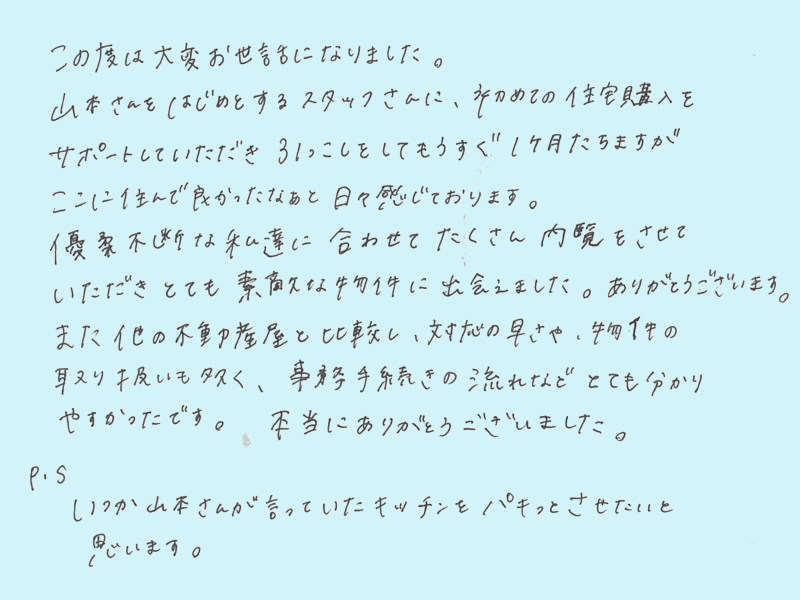 この度は大変お世話になりました。
山本さんをはじめとするスタッフさんに、初めての住宅購入を
サポートしていただき引っこしをしてもうすぐ1ケ月たちますが
ここに住んで良かったなぁと日々感じております。
優柔不断な私達に合わせてたくさん内覧をさせて
いただきとても素敵な物件に出会えました。ありがとうございます。
また他の不動産屋と比較し、対応の早さや、物件の
取り扱いも多く、事務手続きの流れなどとても分かり
やすかったです。本当にありがとうございました。
P.S
いつか山本さんが言っていたキッチンをパキっとさせたいと
思います。